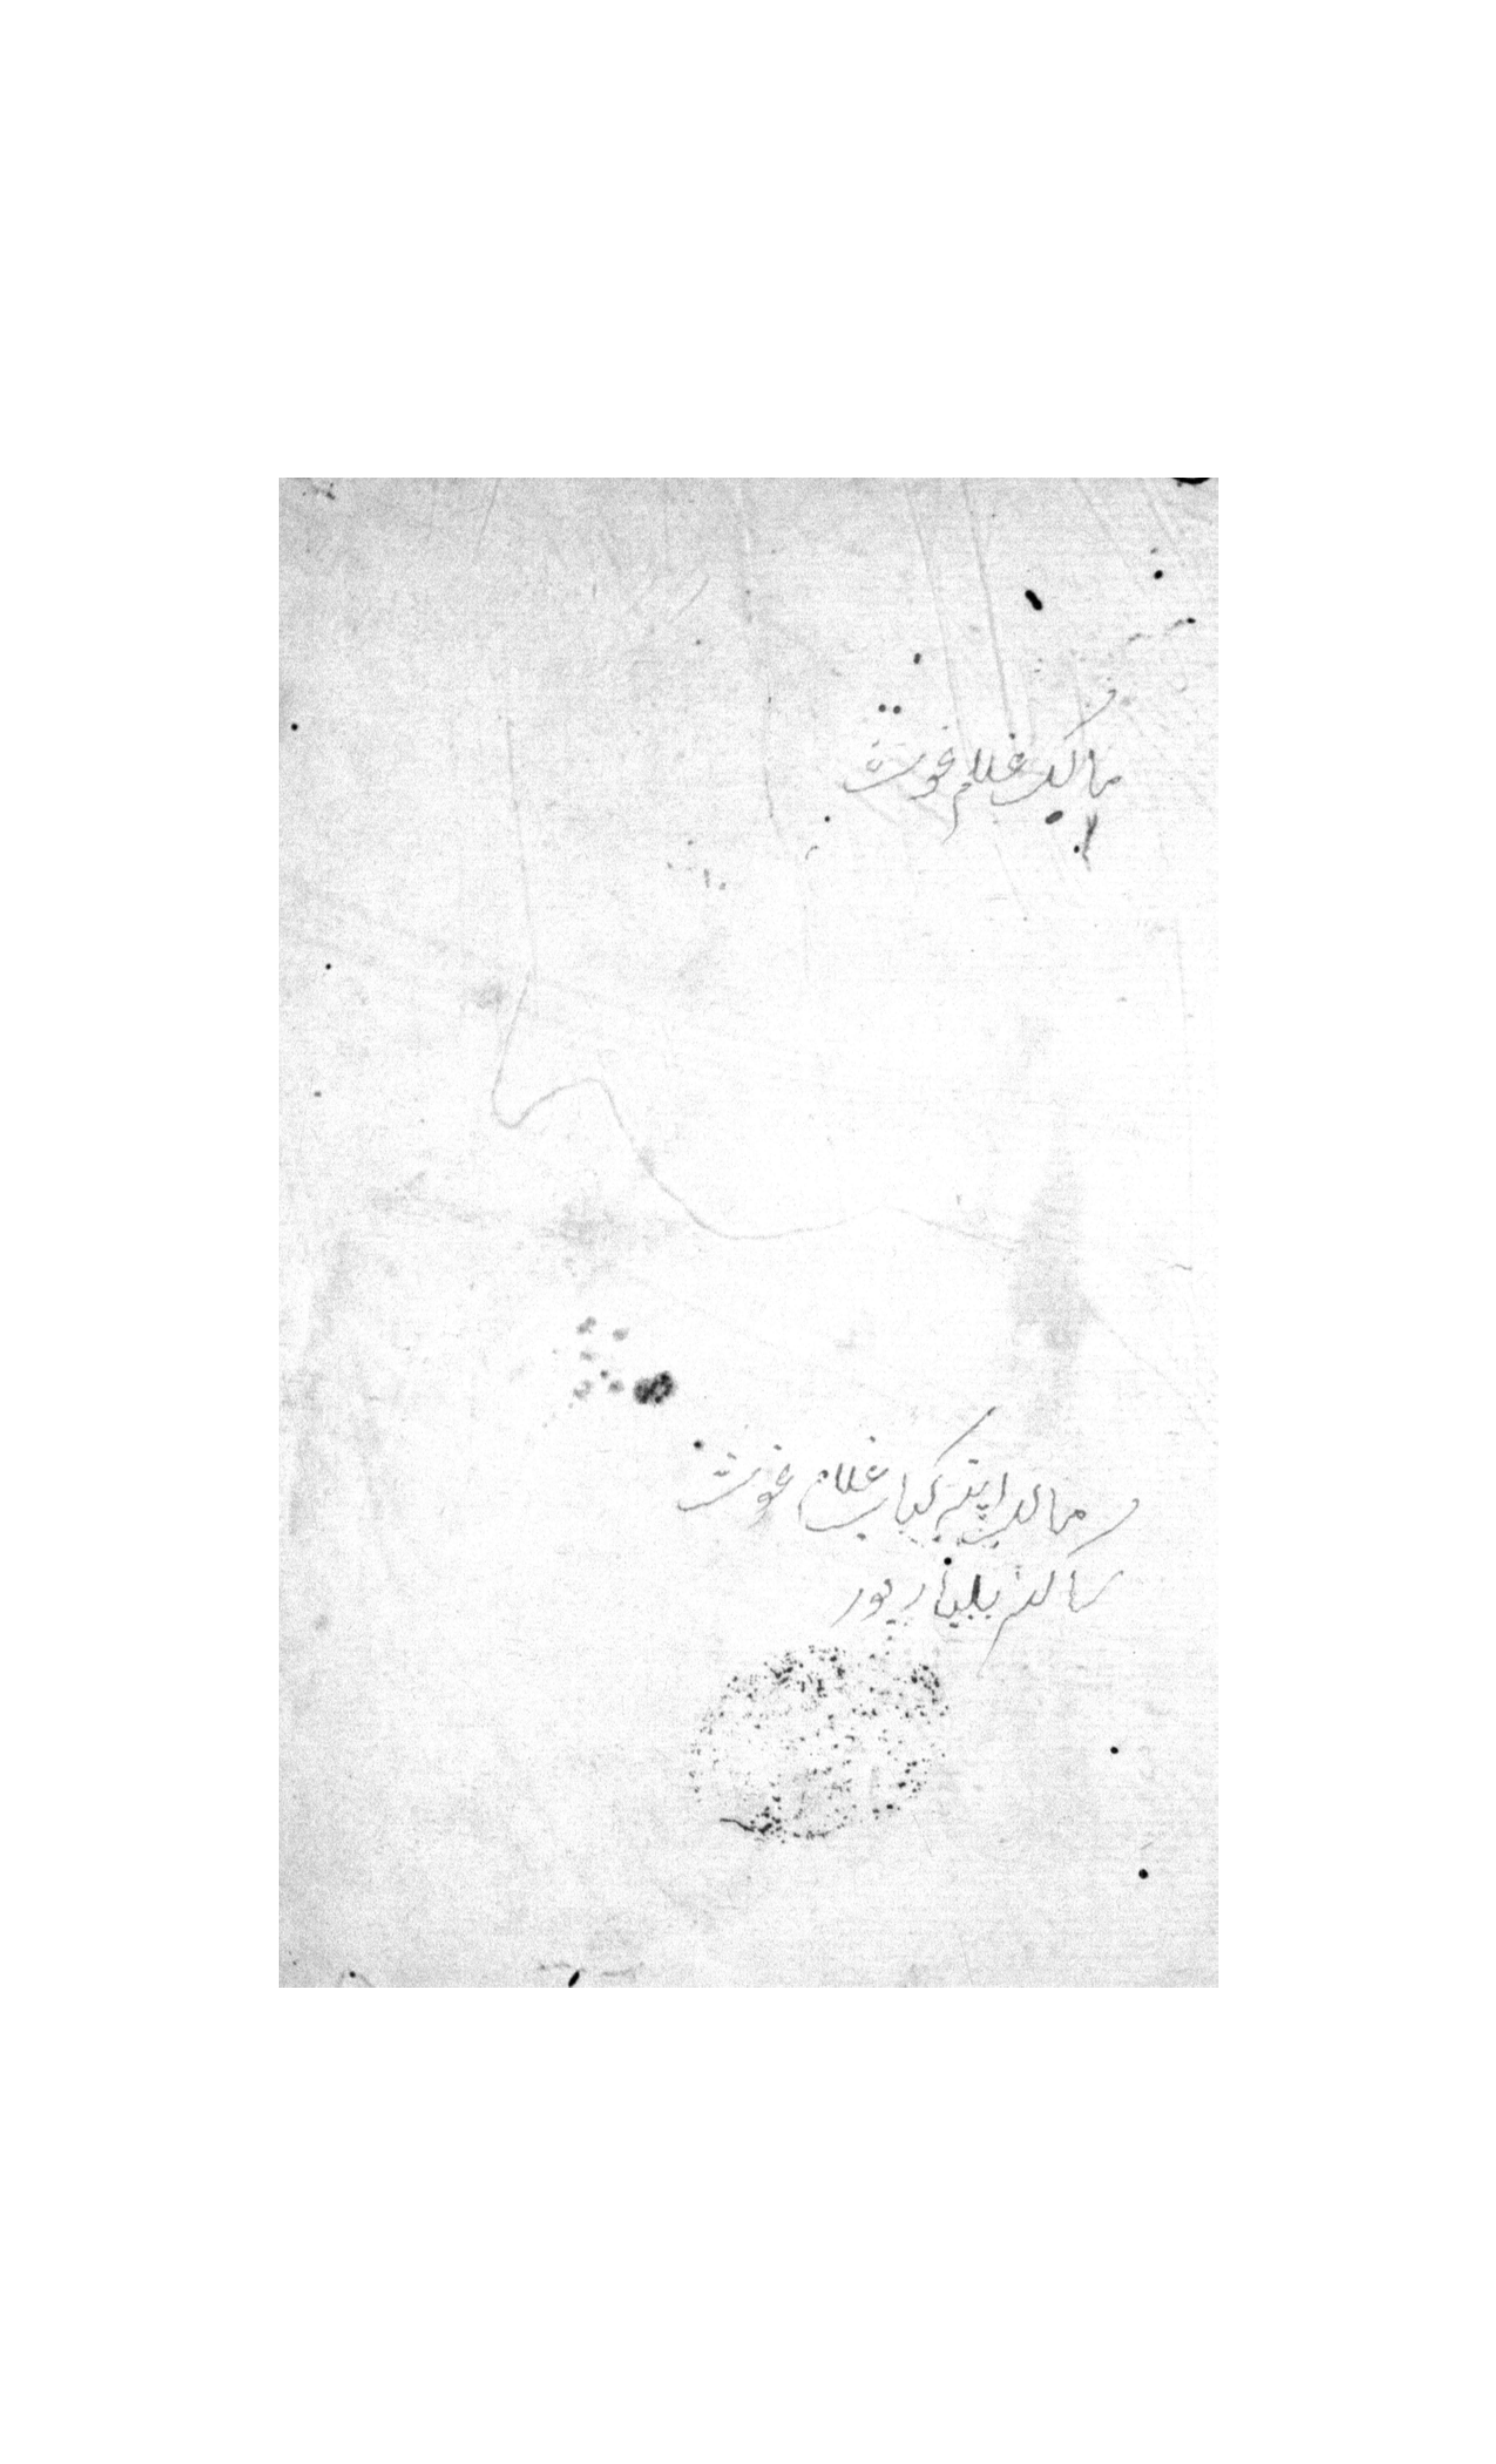 مالک غلام غوث
مالک این کتاب غلام غوث
ساکن